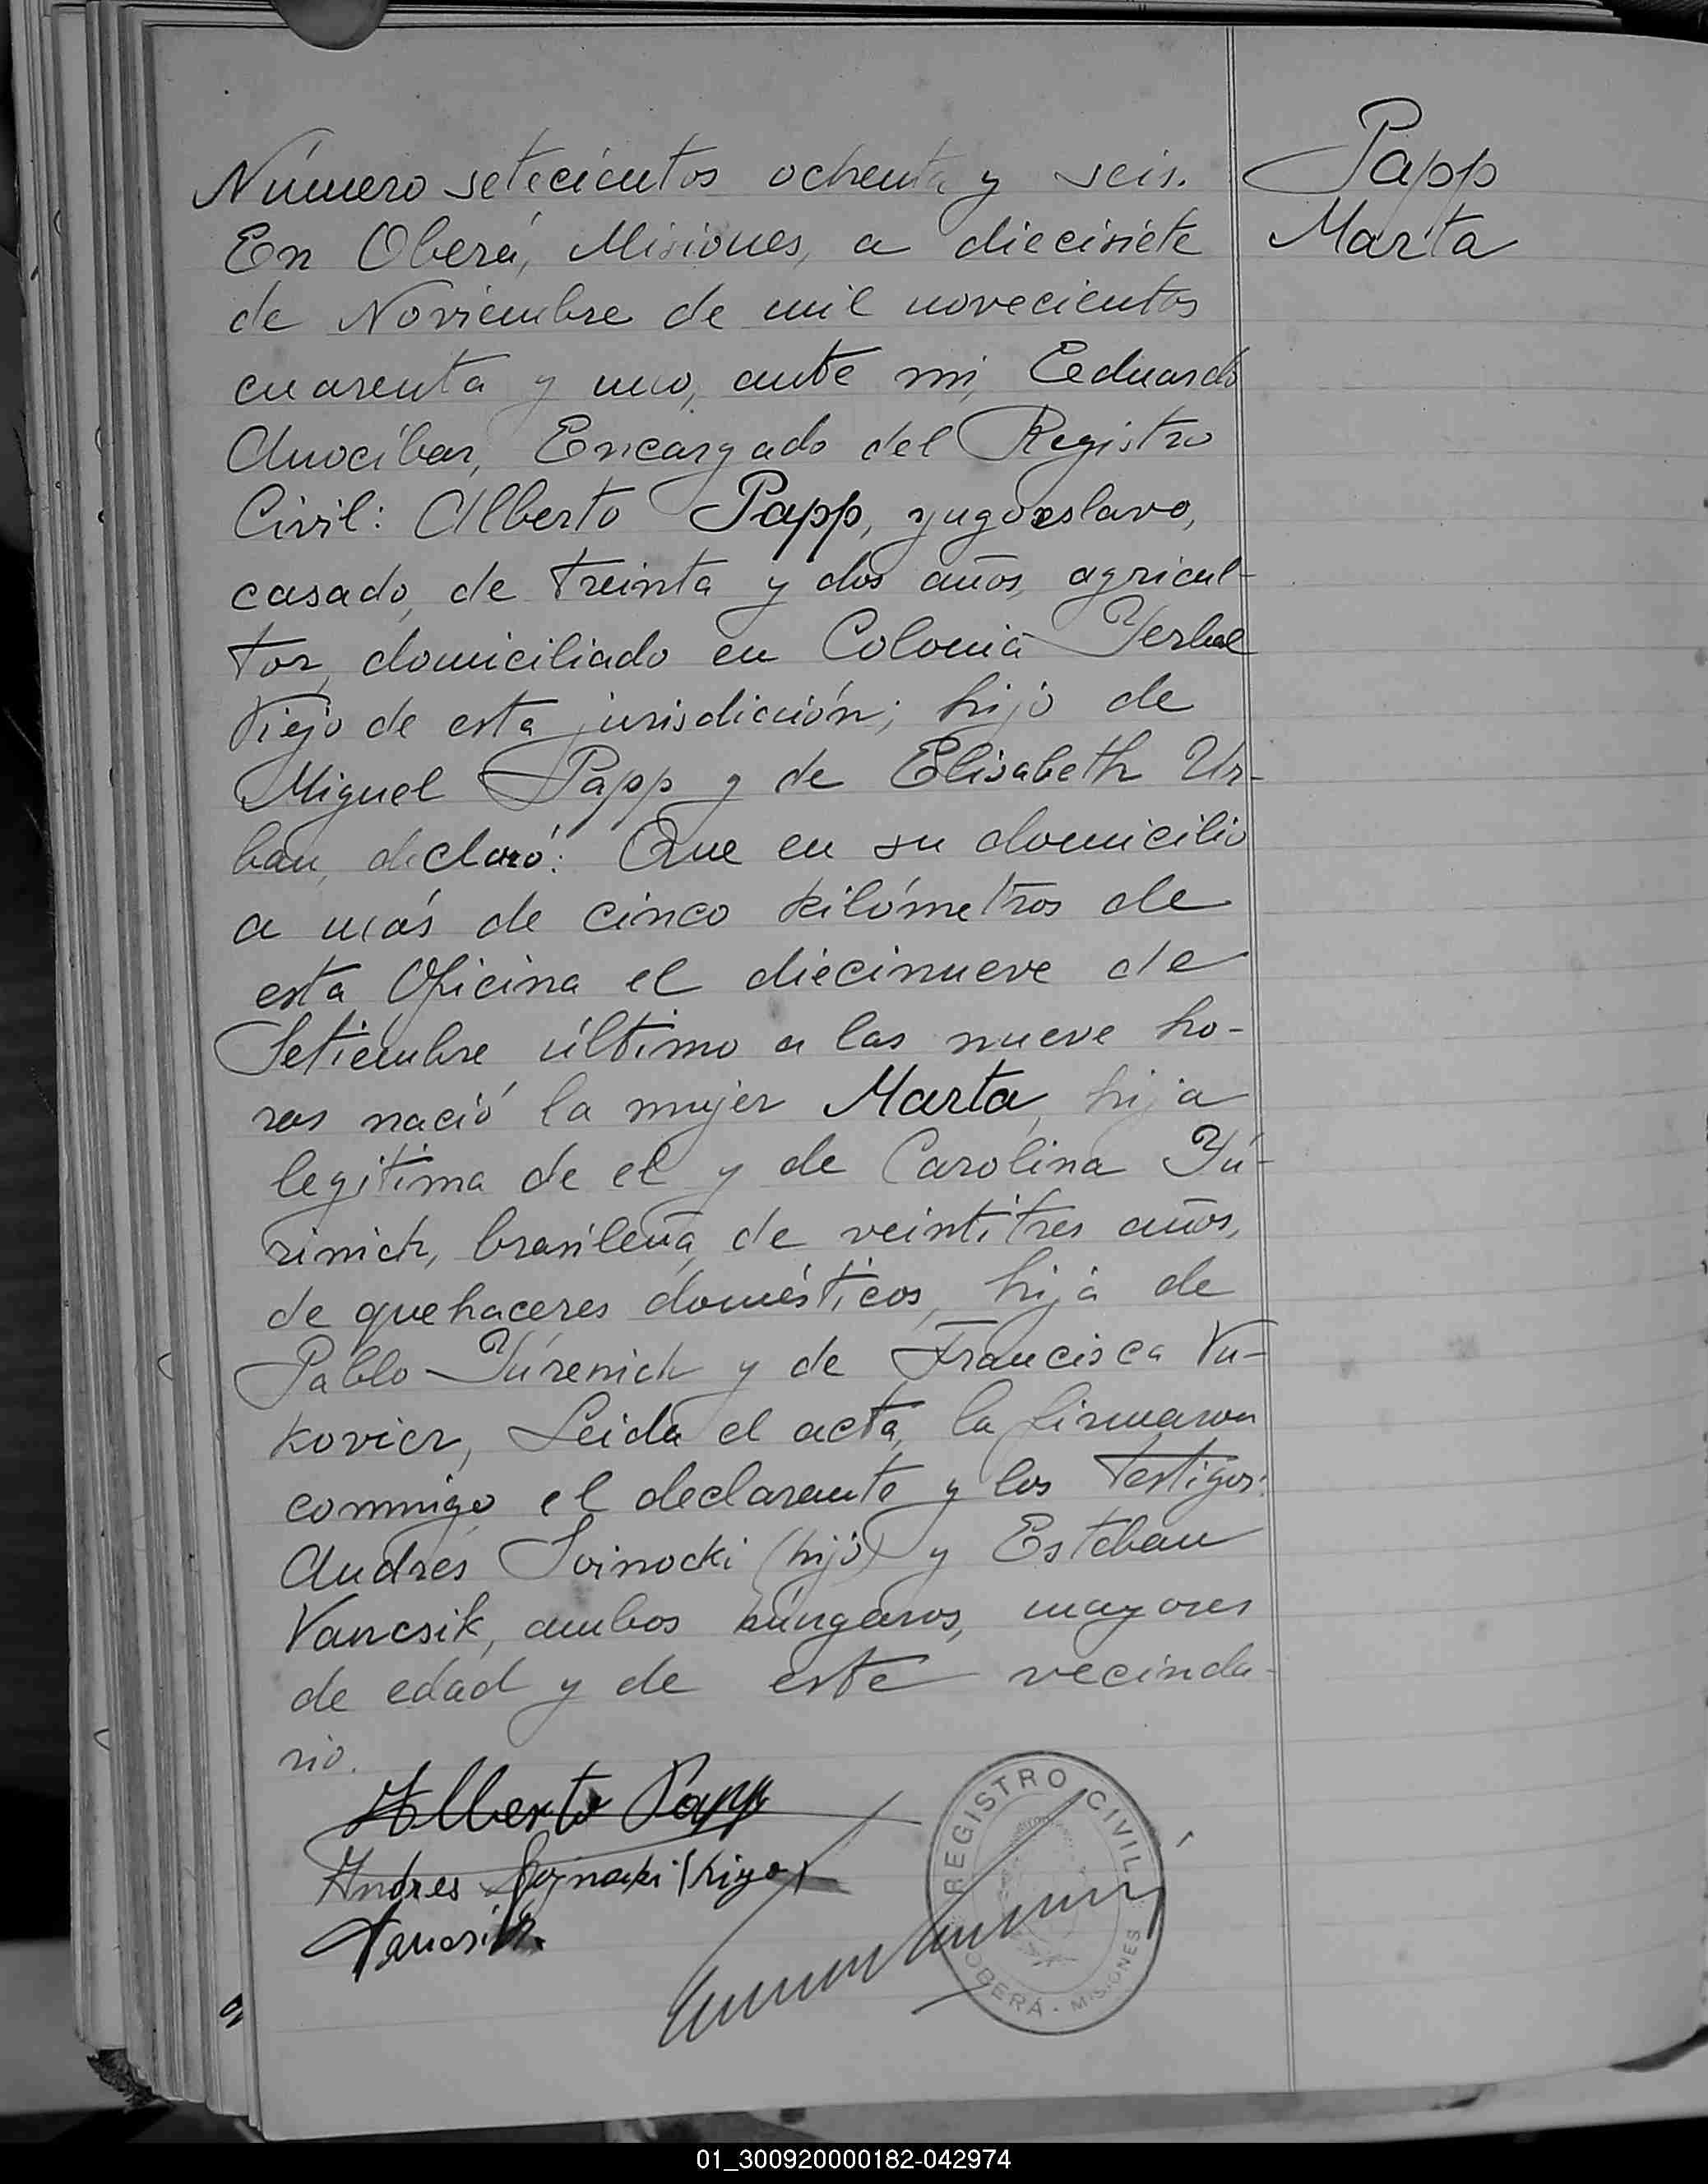 Número setecientos ochenta y seis.
Papp
En Oberá, Misiones, a diecisiete
Marta
de Noviembre de mil novecientos
cuarenta y uno, ante mi, Eduardo
Anocíbar, Encargado del Registro
Civil: Alberto Papp, yugoeslavo,
casado, de treinta y dos años, agricul-
tor, domiciliado en Colonia Yerbal
Viejo de esta jurisdicción; hijo de
Miguel Papp y de Elisabeth Ur-
ban, declaró: Que en su domicilio
a más de cinco kilómetros de
esta Oficina el diecinueve de
Setiembre último a las nueve ho-
ras nació la mujer Marta, hija
legitima de el y de Carolina Yú-
rinich, brasileña, de veintitres años,
de quehaceres domésticos, hija de
Pablo Yúrenich y de Francisca Vu-
kovier, Leida el acta, la firmaron
conmigo el declarante y los testigos:
Andrés Soinocki (hijo) y Esteban
Vancsik, ambos húngaros, mayores
de edad y de este vecinda-
rio.
Alberto Papp
Andres (hijo)
Vancsik.
REGISTRO CIVIL
OBERÁ - MISIONES
01_300920000182-042974